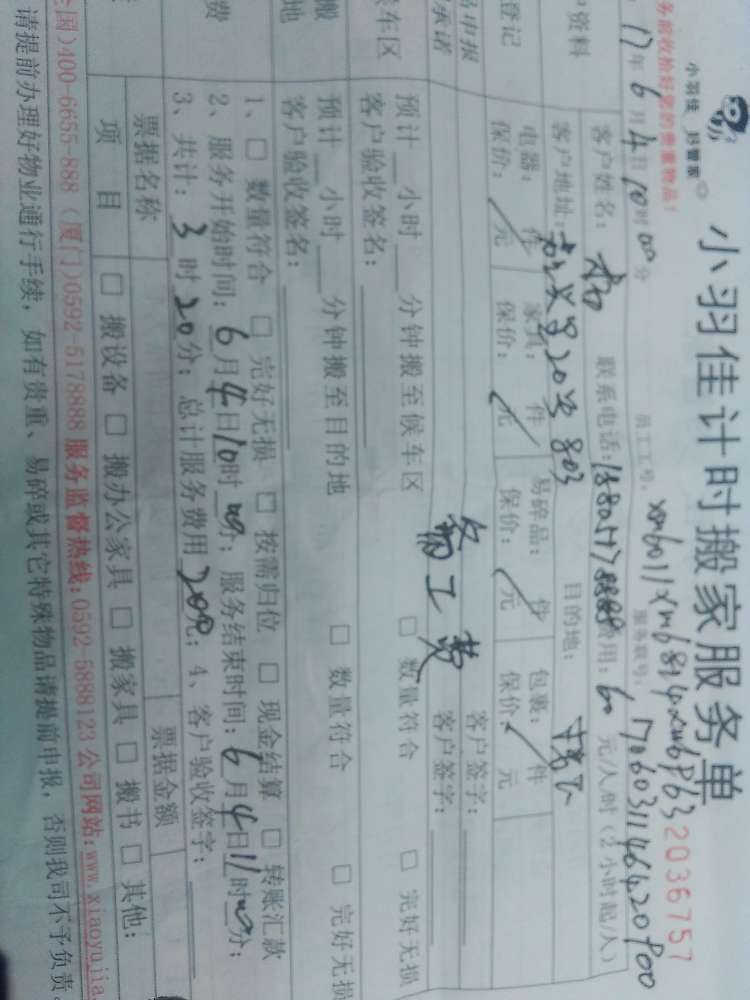 小羽佳 好管家
小羽佳计时搬家服务单
务前收捡好您的贵重物品！
2036757
17年6月4日10时00分
员工工号：
服务联号：
资料
客户姓名： 联系电话： 费用：60元/人时（2小时起/人）
客户地址： 20号803 目的地： 楼下
登记
电器： 件 家具： 件 易碎品： 件 包裹： 件
保价： 元 保价： 元 保价： 元 保价： 元
品申报 客户签字：
承诺 客户签字：
候车区
预计 小时 分钟搬至候车区 □ 数量符合 □ 完好无损
客户验收签名：
搬 地
预计 小时 分钟搬至目的地 □ 数量符合 □ 完好无损
客户验收签名：
工费
费
1、□ 数量符合 □ 完好无损 □ 按需归位 □ 现金结算 □ 转账汇款
2、服务开始时间：6月4日10时00分；服务结束时间：6月4日11时00分；
3、共计：3时20分；总计服务费用200元；4、客户验收签字：
票据名称 票据金额
项 目 □ 搬设备 □ 搬办公家具 □ 搬家具 □ 搬书 □ 其他：
全国)400-6655-888 （厦门)0592-5178888 服务监督热线:0592-5888123 公司网站:www.xiaoyujia.
请提前办理好物业通行手续，如有贵重、易碎或其它特殊物品请提前申报，否则我司不予负责。